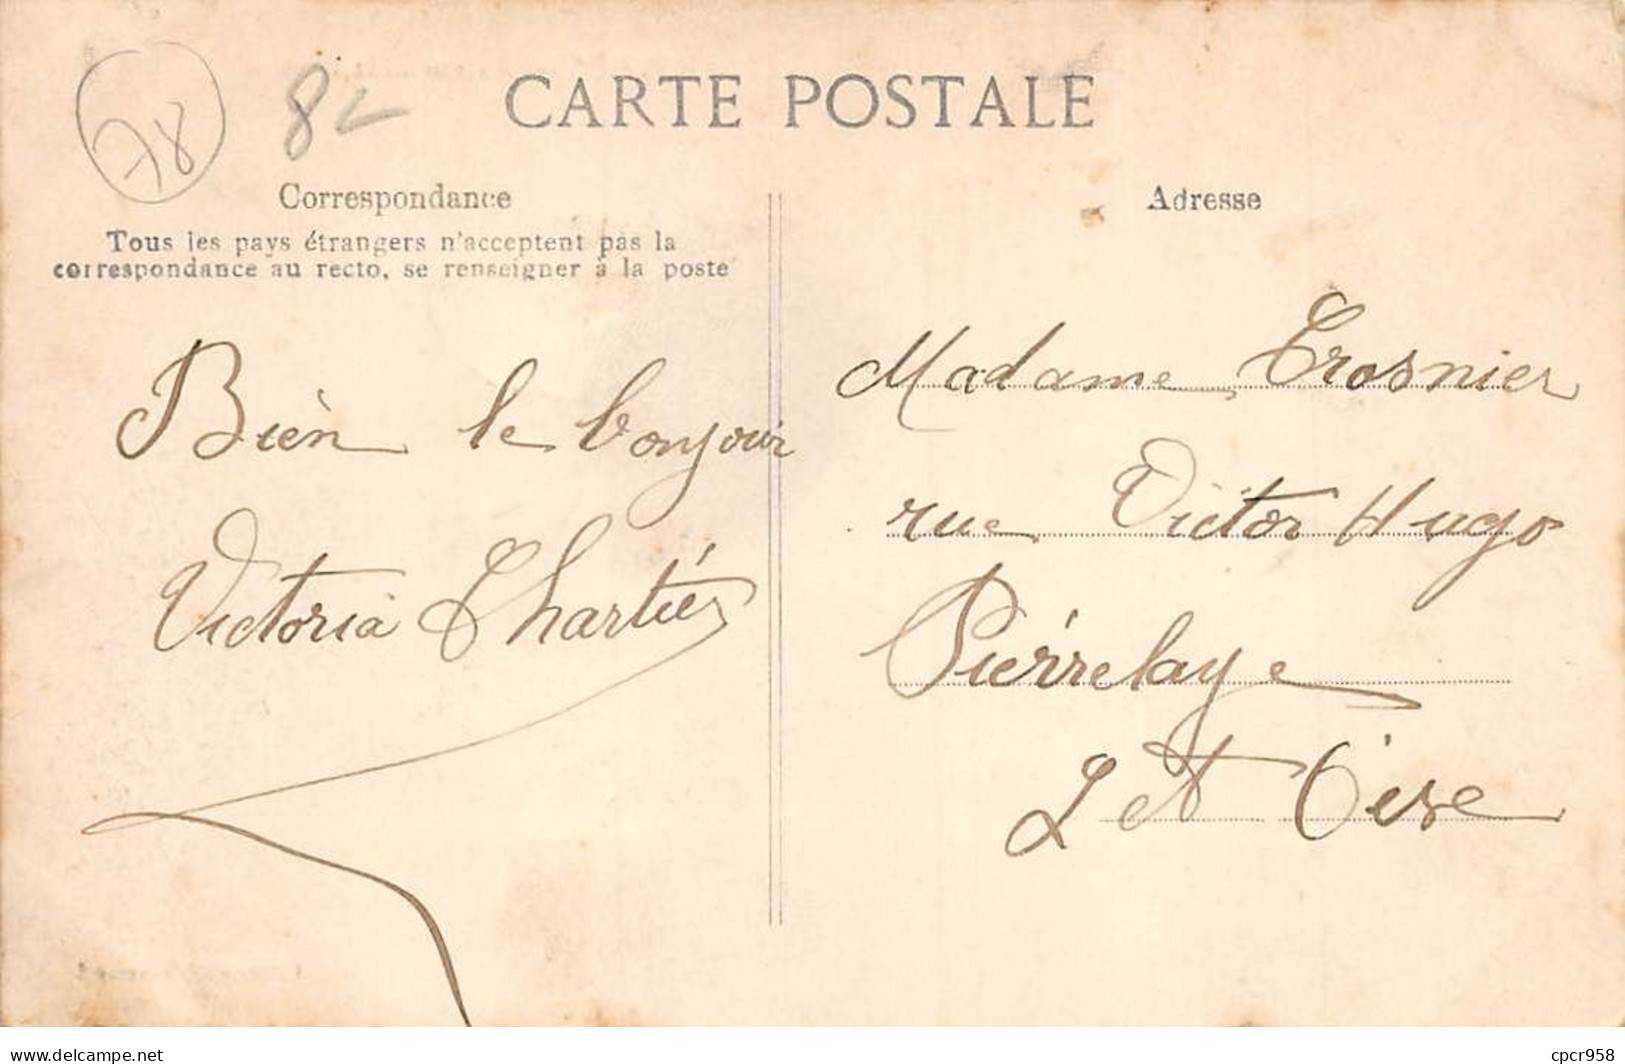 78
8
CARTE POSTALE
Correspondance
Tous les pays étrangers n'acceptent pas la
correspondance au recto, se renseigner à la poste
Bien le bonjour
Victoria Chartier
Adresse
Madame Trosnier
rue Victor Hugo
Pierrelaye
S et Oise
delcampe.net
cpcr958